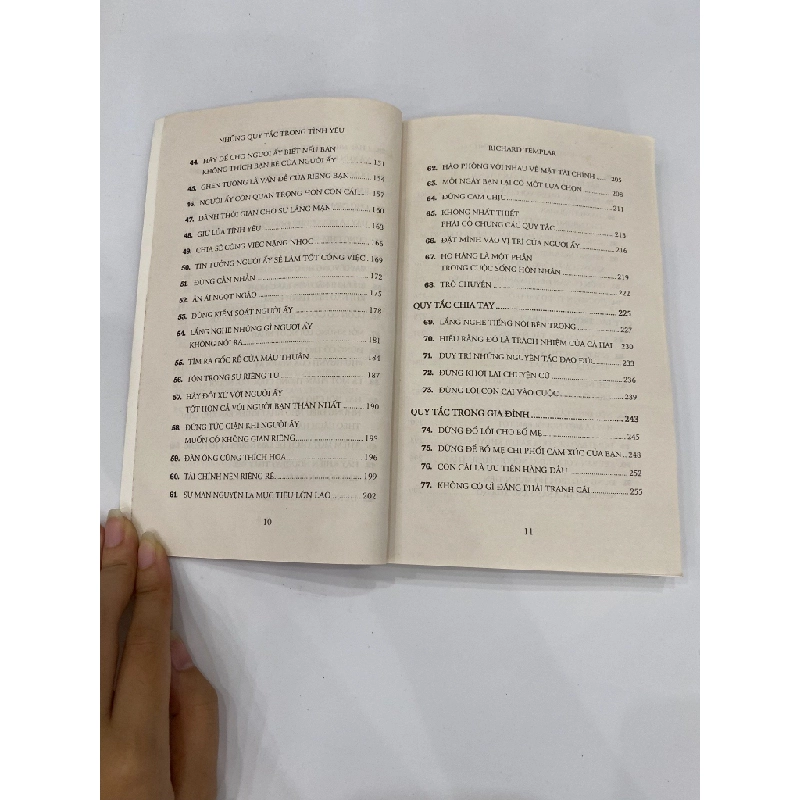 NHỮNG QUY TẮC TRONG TÌNH YÊU
44. HÃY ĐỂ CHO NGƯỜI ẤY BIẾT NẾU BẠN
KHÔNG THÍCH BẠN BÈ CỦA NGƯỜI ẤY ... 151
45. GHEN TUÔNG LÀ VẤN ĐỀ CỦA RIÊNG BẠN ... 154
46. NGƯỜI ẤY CÒN QUAN TRỌNG HƠN CON CÁI ... 157
47. DÀNH THỜI GIAN CHO SỰ LÃNG MẠN ... 160
48. GIỮ LỬA TÌNH YÊU ... 163
49. CHIA SẺ CÔNG VIỆC NẶNG NHỌC ... 65
50. TIN TƯỞNG NGƯỜI ẤY SẼ LÀM TỐT CÔNG VIỆC ... 169
51. ĐỪNG CẰN NHẰN ... 172
52. ÂN ÁI NGỌT NGÀO ... 175
53. ĐỪNG KIỂM SOÁT NGƯỜI ẤY ... 178
54. LẮNG NGHE NHỮNG GÌ NGƯỜI ẤY
KHÔNG NÓI RA ... 181
55. TÌM RA GỐC RỄ CỦA MÂU THUẪN ... 184
56. TÔN TRỌNG SỰ RIÊNG TƯ ... 187
57. HÃY ĐỐI XỬ VỚI NGƯỜI ẤY
TỐT HƠN CẢ VỚI NGƯỜI BẠN THÂN NHẤT ... 190
58. ĐỪNG TỨC GIẬN KHI NGƯỜI ẤY
MUỐN CÓ KHÔNG GIAN RIÊNG ... 193
59. ĐÀN ÔNG CŨNG THÍCH HOA ... 196
60. TÀI CHÍNH NÊN RIÊNG RẼ ... 199
61. SỰ MÃN NGUYỆN LÀ MỤC TIÊU LỚN LAO ... 202
10
RICHARD TEMPLAR
62. HÀO PHÓNG VỚI NHAU VỀ MẶT TÀI CHÍNH ... 205
63. MỖI NGÀY BẠN LẠI CÓ MỘT LỰA CHỌN ... 208
64. ĐỪNG CAM CHỊU ... 211
65. KHÔNG NHẤT THIẾT
PHẢI CÓ CHUNG CÁC QUY TẮC ... 213
66. ĐẶT MÌNH VÀO VỊ TRÍ CỦA NGƯỜI ẤY ... 216
67. HỌ HÀNG LÀ MỘT PHẦN
TRONG CUỘC SỐNG HÔN NHÂN ... 219
68. TRÒ CHUYỆN ... 222
QUY TẮC CHIA TAY ... 225
69. LẮNG NGHE TIẾNG NÓI BÊN TRONG ... 227
70. HIỂU RẰNG ĐÓ LÀ TRÁCH NHIỆM CỦA CẢ HAI ... 230
71. DUY TRÌ NHỮNG NGUYÊN TẮC ĐẠO ĐỨC ... 233
72. ĐỪNG KHƠI LẠI CHUYỆN CŨ ... 236
73. ĐỪNG LÔI CON CÁI VÀO CUỘC ... 239
QUY TẮC TRONG GIA ĐÌNH ... 243
74. ĐỪNG ĐỔ LỖI CHO BỐ MẸ ... 245
75. ĐỪNG ĐỂ BỐ MẸ CHI PHỐI CẢM XÚC CỦA BẠN ... 248
76. CON CÁI LÀ ƯU TIÊN HÀNG ĐẦU ... 252
77. KHÔNG CÓ GÌ ĐÁNG PHẢI TRANH CÃI ... 255
11